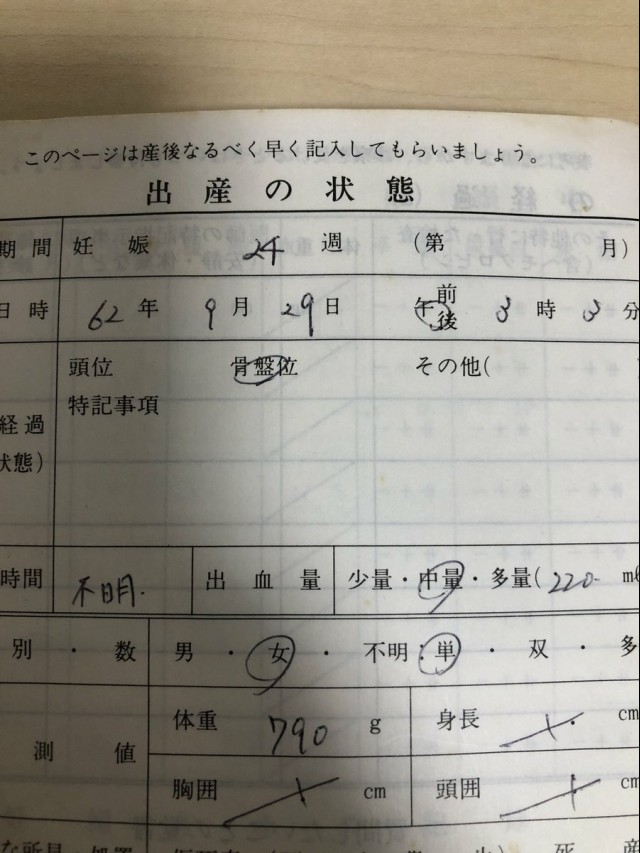 このページは産後なるべく早く記入してもらいましょう。
出産の状態
期間 妊娠 24 週 (第 月)
日時 62年 9月 29日 午前後 3時 3分
頭位 骨盤位 その他(
特記事項
経過
状態)
時間 不明. 出血量 少量・中量・多量(220. ml
別・数 男・女・不明 単・双・多
測値 体重 790 g 身長 cm
胸囲 cm 頭囲 cm